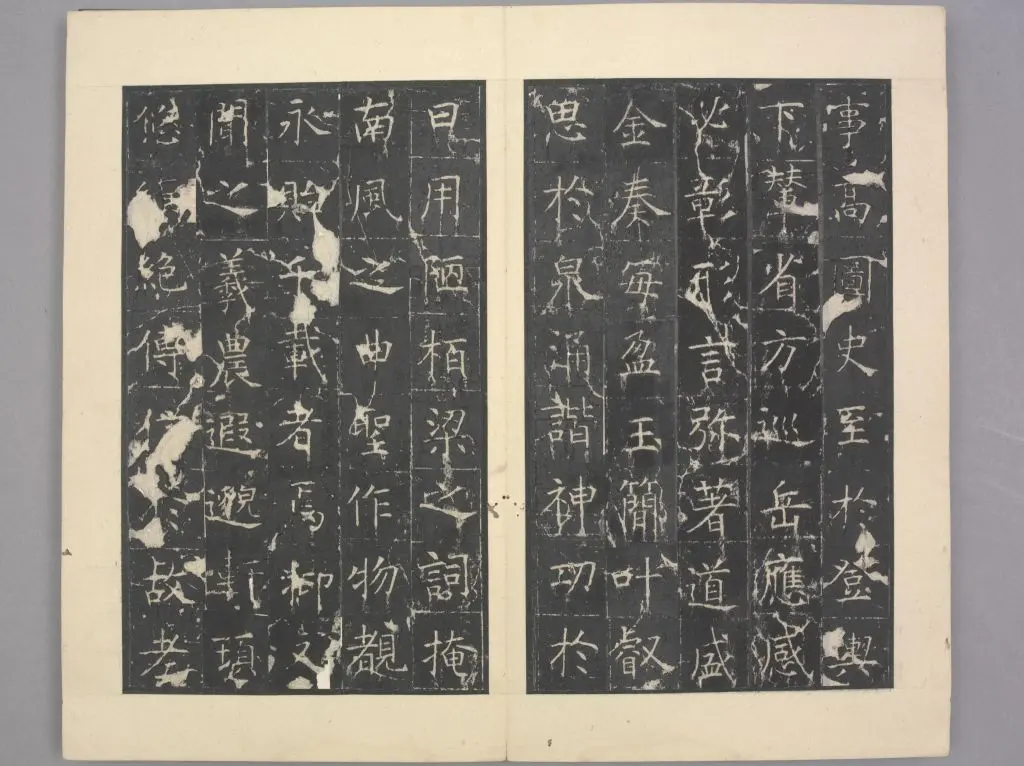 事高圖史至於登輿
下輦省方巡岳應感
必彰形言弥著道盛
金奏每盈玉簡叶叡
思於泉涌諧神功於
日用陋栢梁之詞掩
南風之曲聖作物覩
永貽千載者焉抑又
聞之羲農遐邈軒頊
悠絶傳信於故老